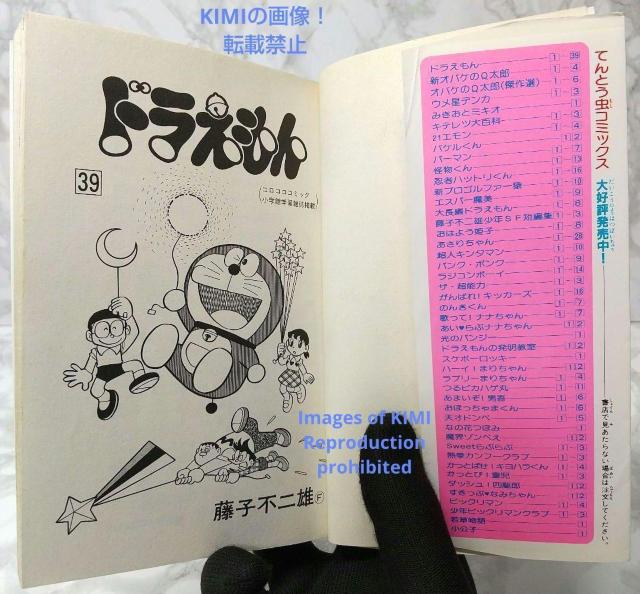 KIMIの画像！
転載禁止
ドラえもん
39
コロコロコミック
小学館学習雑誌掲載
藤子不二雄Ⓕ
Images of KIMI
Reproduction
prohibited
てんとう虫コミックス
大好評発売中！
ドラえもん 1-39
新オバケのQ太郎 1-4
オバケのQ太郎(傑作選) 1-6
ウメ星デンカ 1-3
みきおとミキオ 1
キテレツ大百科 1-3
21エモン 1-4
バケルくん 1 2
パーマン
怪物くん
忍者ハットリくん
新プロゴルファー猿
エスパー魔美
大長編ドラえもん
藤子不二雄少年SF短編集
おはよう姫子
あさりちゃん
超人キンタマン
パンク・ポンク
ラジコンボーイ
ザ・超能力
がんばれ！キッカーズ
のんきくん
歌って！ナナちゃん
あい♥らぶナナちゃん
光のパンジー
ドラえもんの発明教室
スケボーロッキー
ハーイ！まりちゃん
ラブリーまりちゃん
つるピカハゲ丸
あまいぞ！男吾
おぼっちゃまくん
天オドンベ
なの花つぼみ
魔界ゾンベえ
Sweetらぶらぶ
熱拳カンフークラブ
かっとばせ！キヨハラくん
かっとび！童児
ダッシュ！四駆郎
すきっぷ♥なみちゃん
ビックリマン
少年ビックリマンクラブ
若草物語
小公子
書店で見あたらない場合は注文してください。